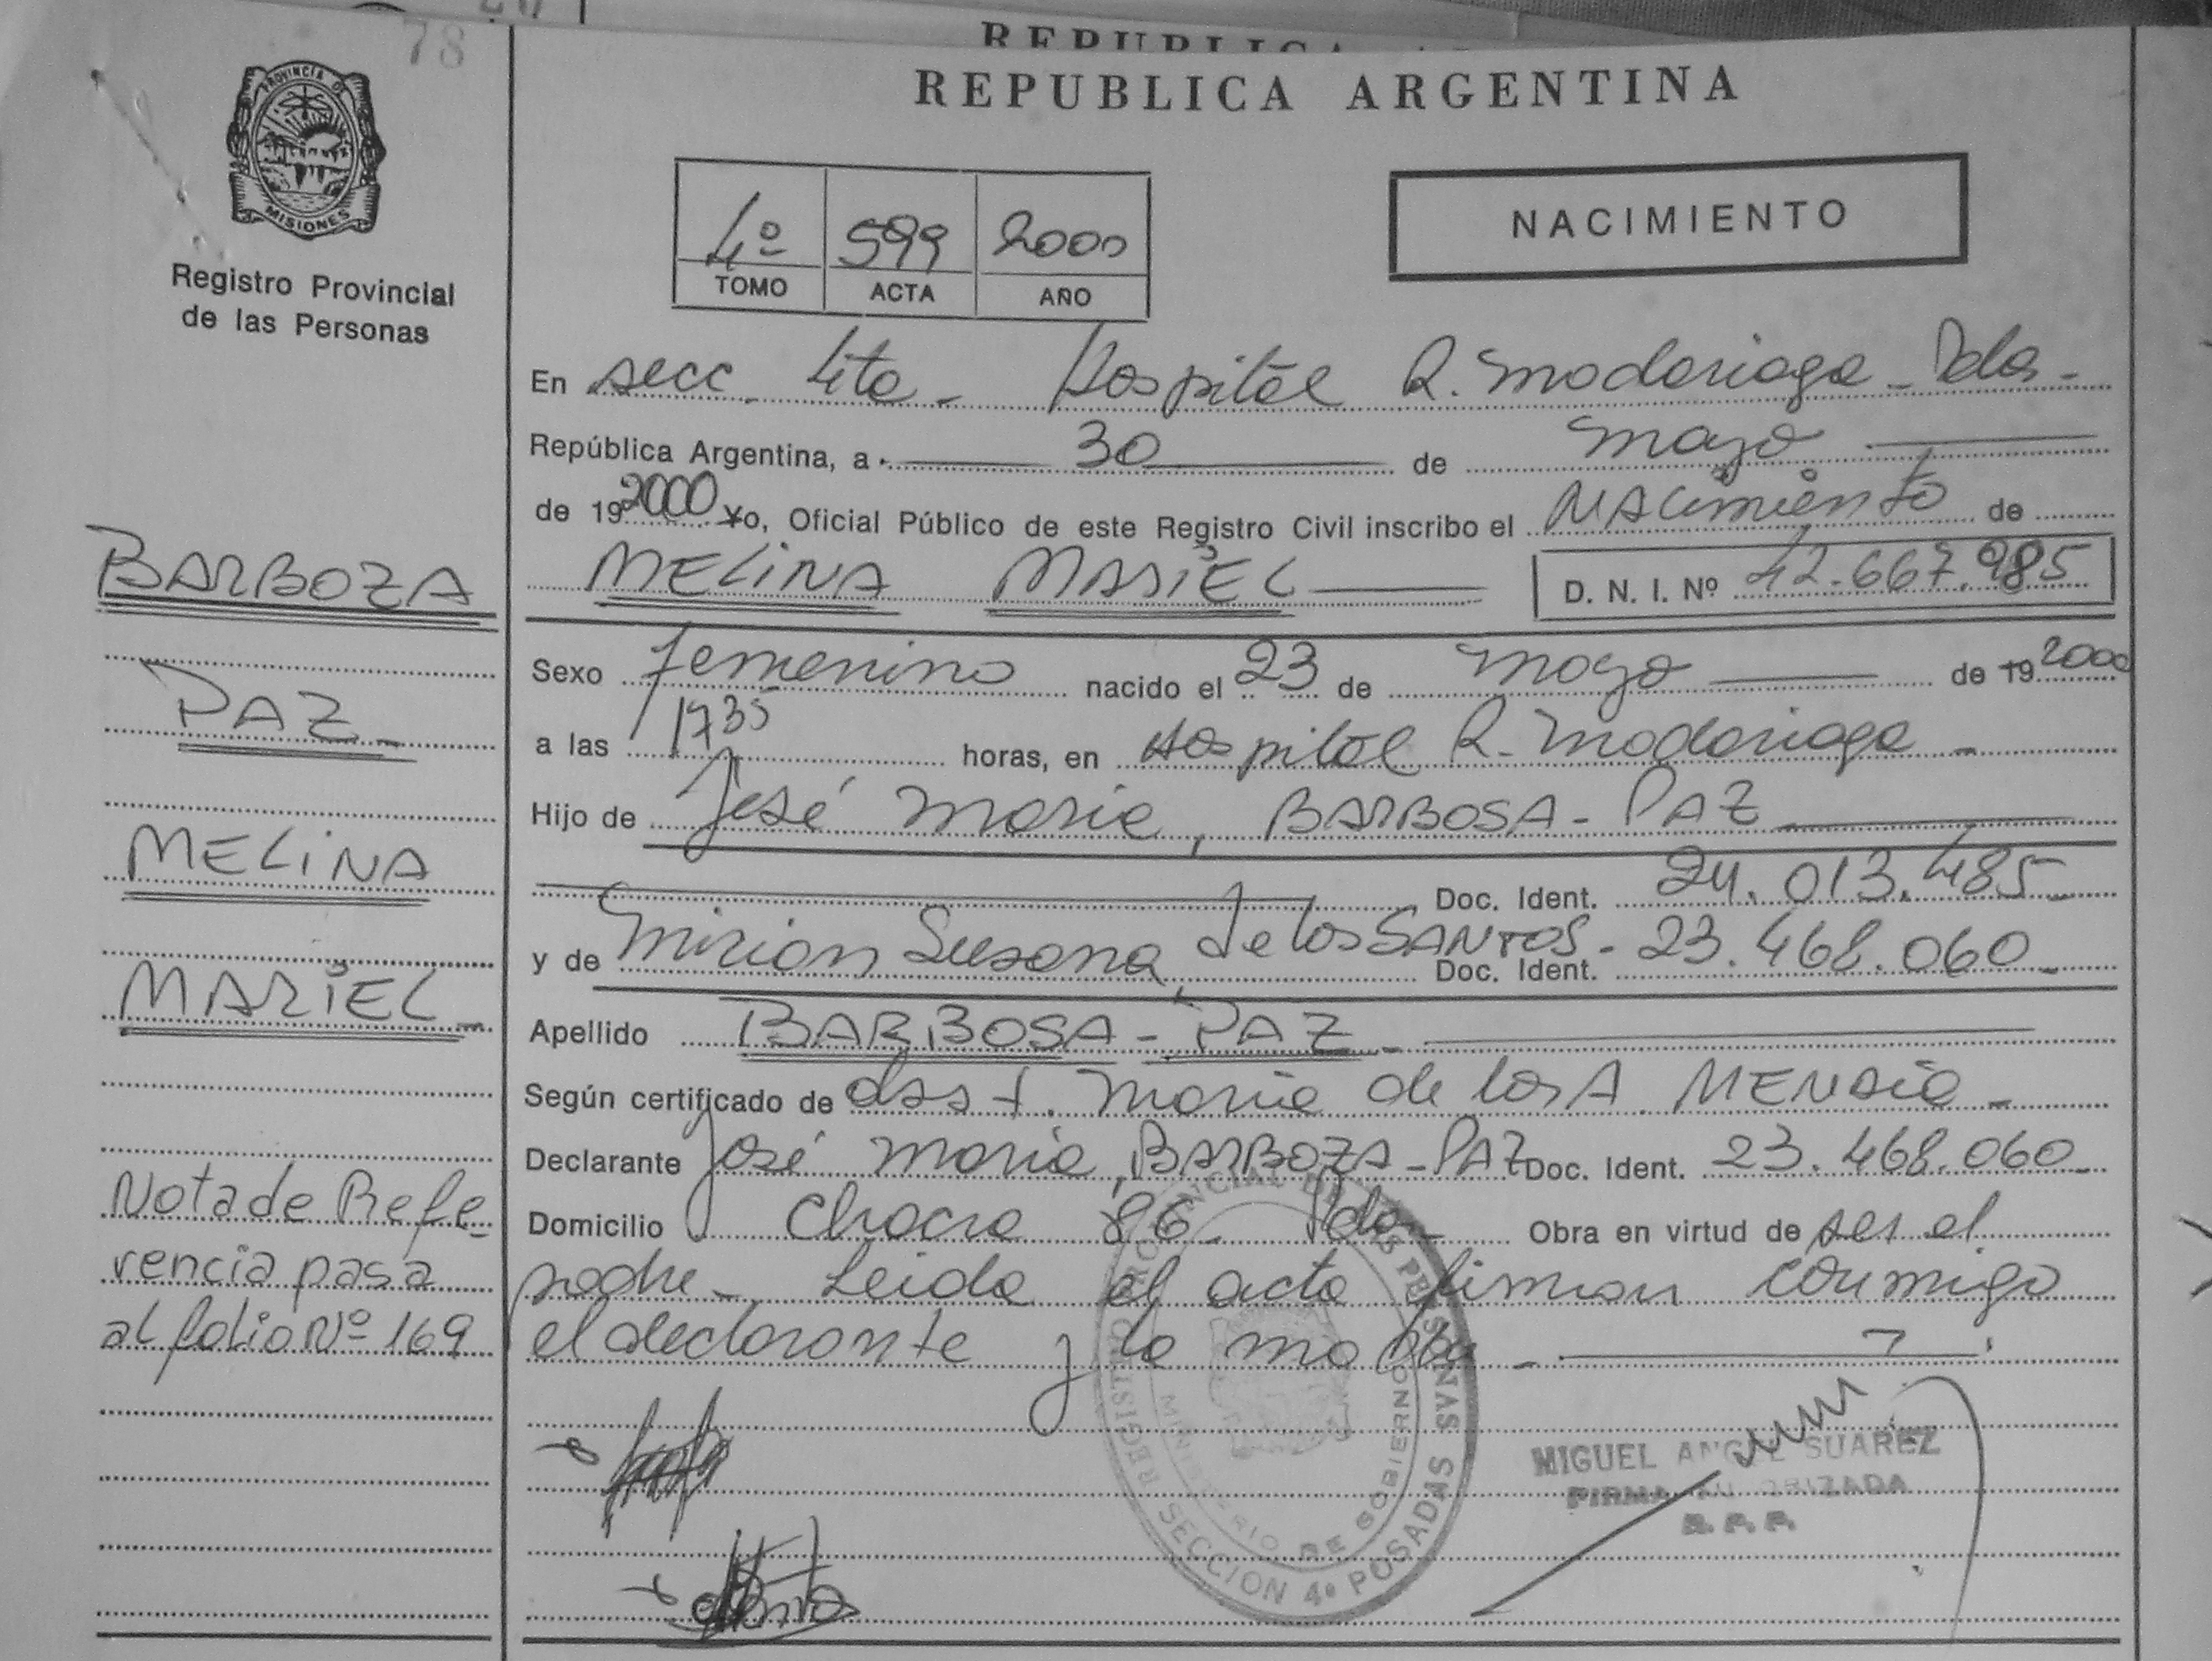 78
REPUBLICA
REPUBLICA ARGENTINA
PROVINCIA DE MISIONES
Registro Provincial
de las Personas
4º 599 2000
TOMO ACTA AÑO
NACIMIENTO
En secc. 4ta - Hospital R. Madariaga - Pdas -
República Argentina, a 30 de mayo
de 19 2000 Yo, Oficial Público de este Registro Civil inscribo el NAcimiento de
MELINA MARIEL D. N. I. Nº 42.667.985
Sexo femenino nacido el 23 de mayo de 19 2000
a las 1735 horas, en Hospital R. Madariaga -
Hijo de José Maria, BARBOSA - PAZ
Doc. Ident. 24.013.485
y de Mirian Susana de los SANTOS - Doc. Ident. 23.468.060
Apellido BARBOSA - PAZ -
Según certificado de obst. Maria de los A. MENDIE -
Declarante José Maria, BARBOZA - PAZ Doc. Ident. 23.468.060
Domicilio Chacra 86 - Pdas - Obra en virtud de ser el
padre - Leida el acta firman conmigo
el declarante y la madre -
BARBOZA
PAZ -
MELINA
MARIEL -
Nota de Refe-
rencia pasa
al folio Nº 169
REGISTRO PROVINCIAL DE LAS PERSONAS
MINISTERIO DE GOBIERNO
SECCION 4ª POSADAS
MIGUEL ANGEL SUAREZ
FIRMA AUTORIZADA
R. P. P.